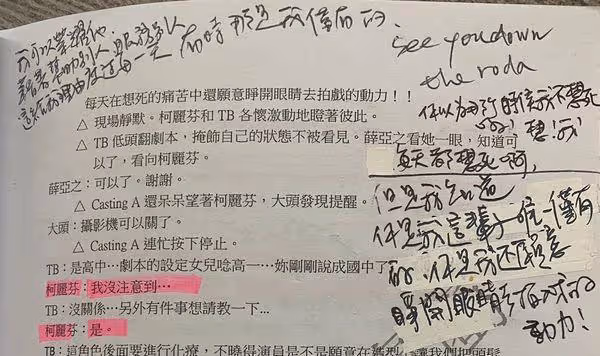 我可以榮耀他
幫助別人、服務別人
理由度過每一天
有的
see you down
the roda
每天都想死啊,
但是我知道
你是我這輩子唯一僅有
的
睜開眼睛去拍戲的
動力!
每天在想死的痛苦中還願意睜開眼睛去拍戲的動力！！
△ 現場靜默。柯麗芬和 TB 各懷激動地瞪著彼此。
△ TB 低頭翻劇本，掩飾自己的狀態不被看見。薛亞之看她一眼，知道可
以了，看向柯麗芬。
薛亞之：可以了。謝謝。
△ Casting A 還呆呆望著柯麗芬，大頭發現提醒。
大頭：攝影機可以關了。
△ Casting A 連忙按下停止。
TB：是高中…劇本的設定女兒唸高一…妳剛剛說成國中了
柯麗芬：我沒注意到…
TB：沒關係…另外有件事想請教一下…
柯麗芬：是。
TB：這角色後面要進行化療，不曉得演員是不是願意在造型